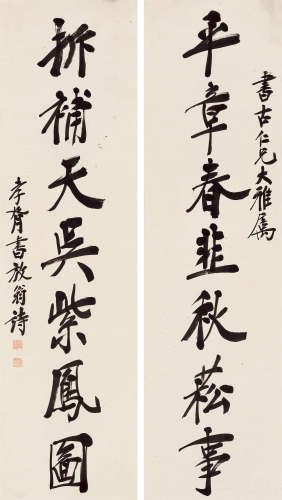 書古仁兄大雅属
平章春韭秋菘事
拆補天吳紫鳳圖
孝胥書放翁詩